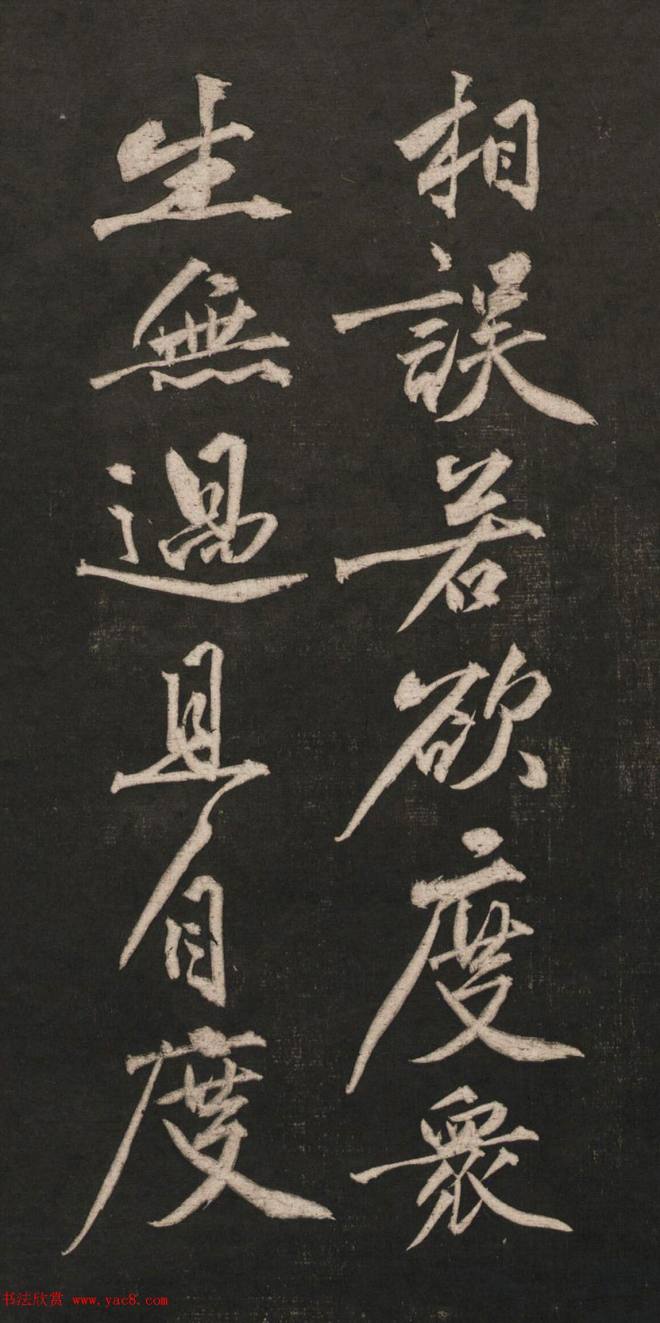 相誤若欲度眾
生無過且自度
书法欣赏 www.yac8.com